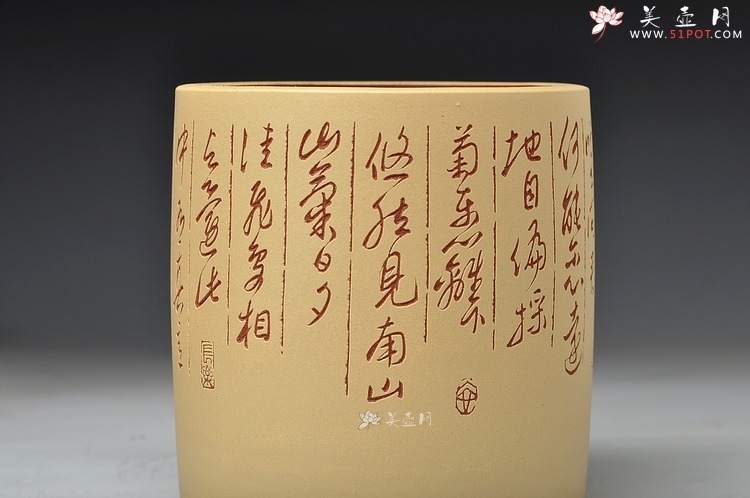 美壶网
WWW.51POT.COM
何能尔心遠
地自偏採
菊东籬下
悠然見南山
山氣日夕
佳飛鸟相
与還此
中
美壶网